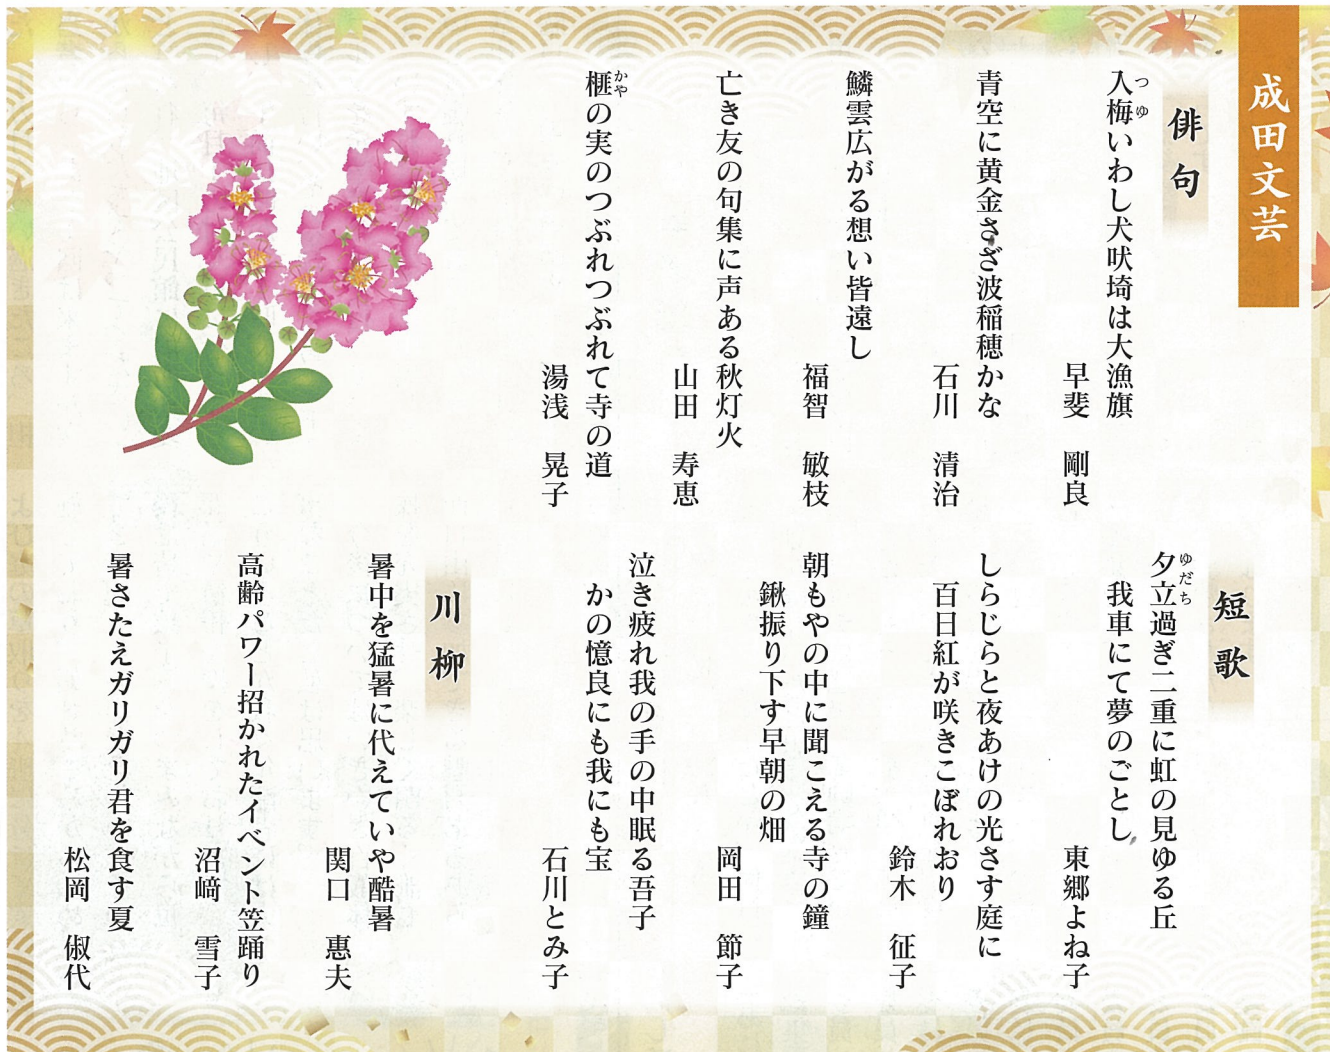 成田文芸
俳句
入梅いわし犬吠埼は大漁旗
つゆ
早斐　剛良
青空に黄金さざ波稲穂かな
石川　清治
鱗雲広がる想い皆遠し
福智　敏枝
亡き友の句集に声ある秋灯火
山田　寿恵
榧の実のつぶれつぶれて寺の道
かや
湯浅　晃子
短歌
夕立過ぎ二重に虹の見ゆる丘
ゆだち
我車にて夢のごとし
東郷よね子
しらじらと夜あけの光さす庭に
百日紅が咲きこぼれおり
鈴木　征子
朝もやの中に聞こえる寺の鐘
鍬振り下す早朝の畑
岡田　節子
泣き疲れ我の手の中眠る吾子
かの憶良にも我にも宝
石川とみ子
川柳
暑中を猛暑に代えていや酷暑
関口　惠夫
高齢パワー招かれたイベント笠踊り
沼﨑　雪子
暑さたえガリガリ君を食す夏
松岡　俶代